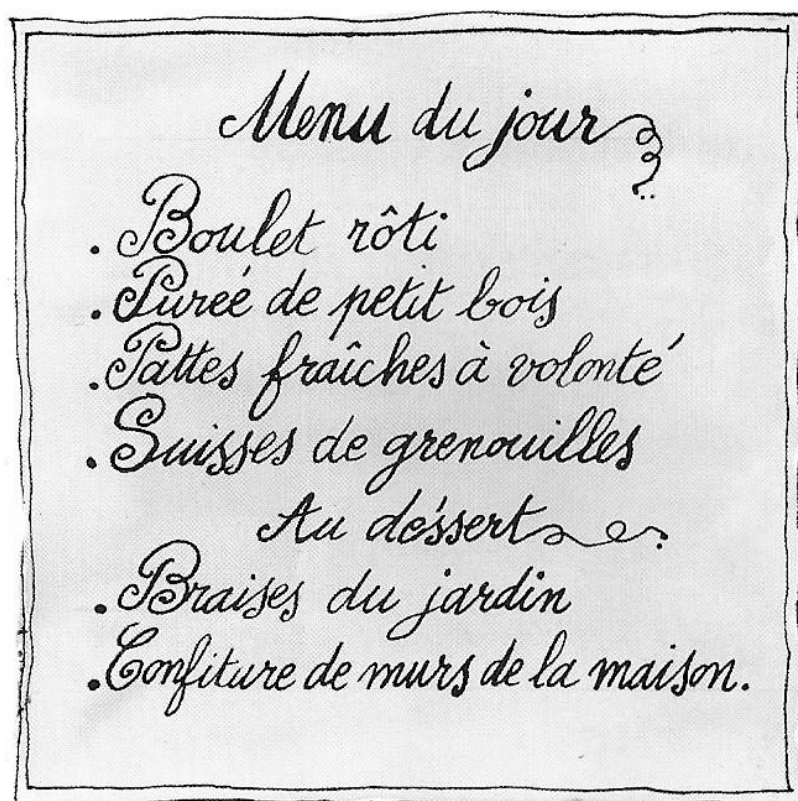 Menu du jour
. Boulet rôti
. Pureé de petit bois
. Pattes fraîches à volonté
. Suisses de grenouilles
Au déssert
. Braises du jardin
. Confiture de murs de la maison.